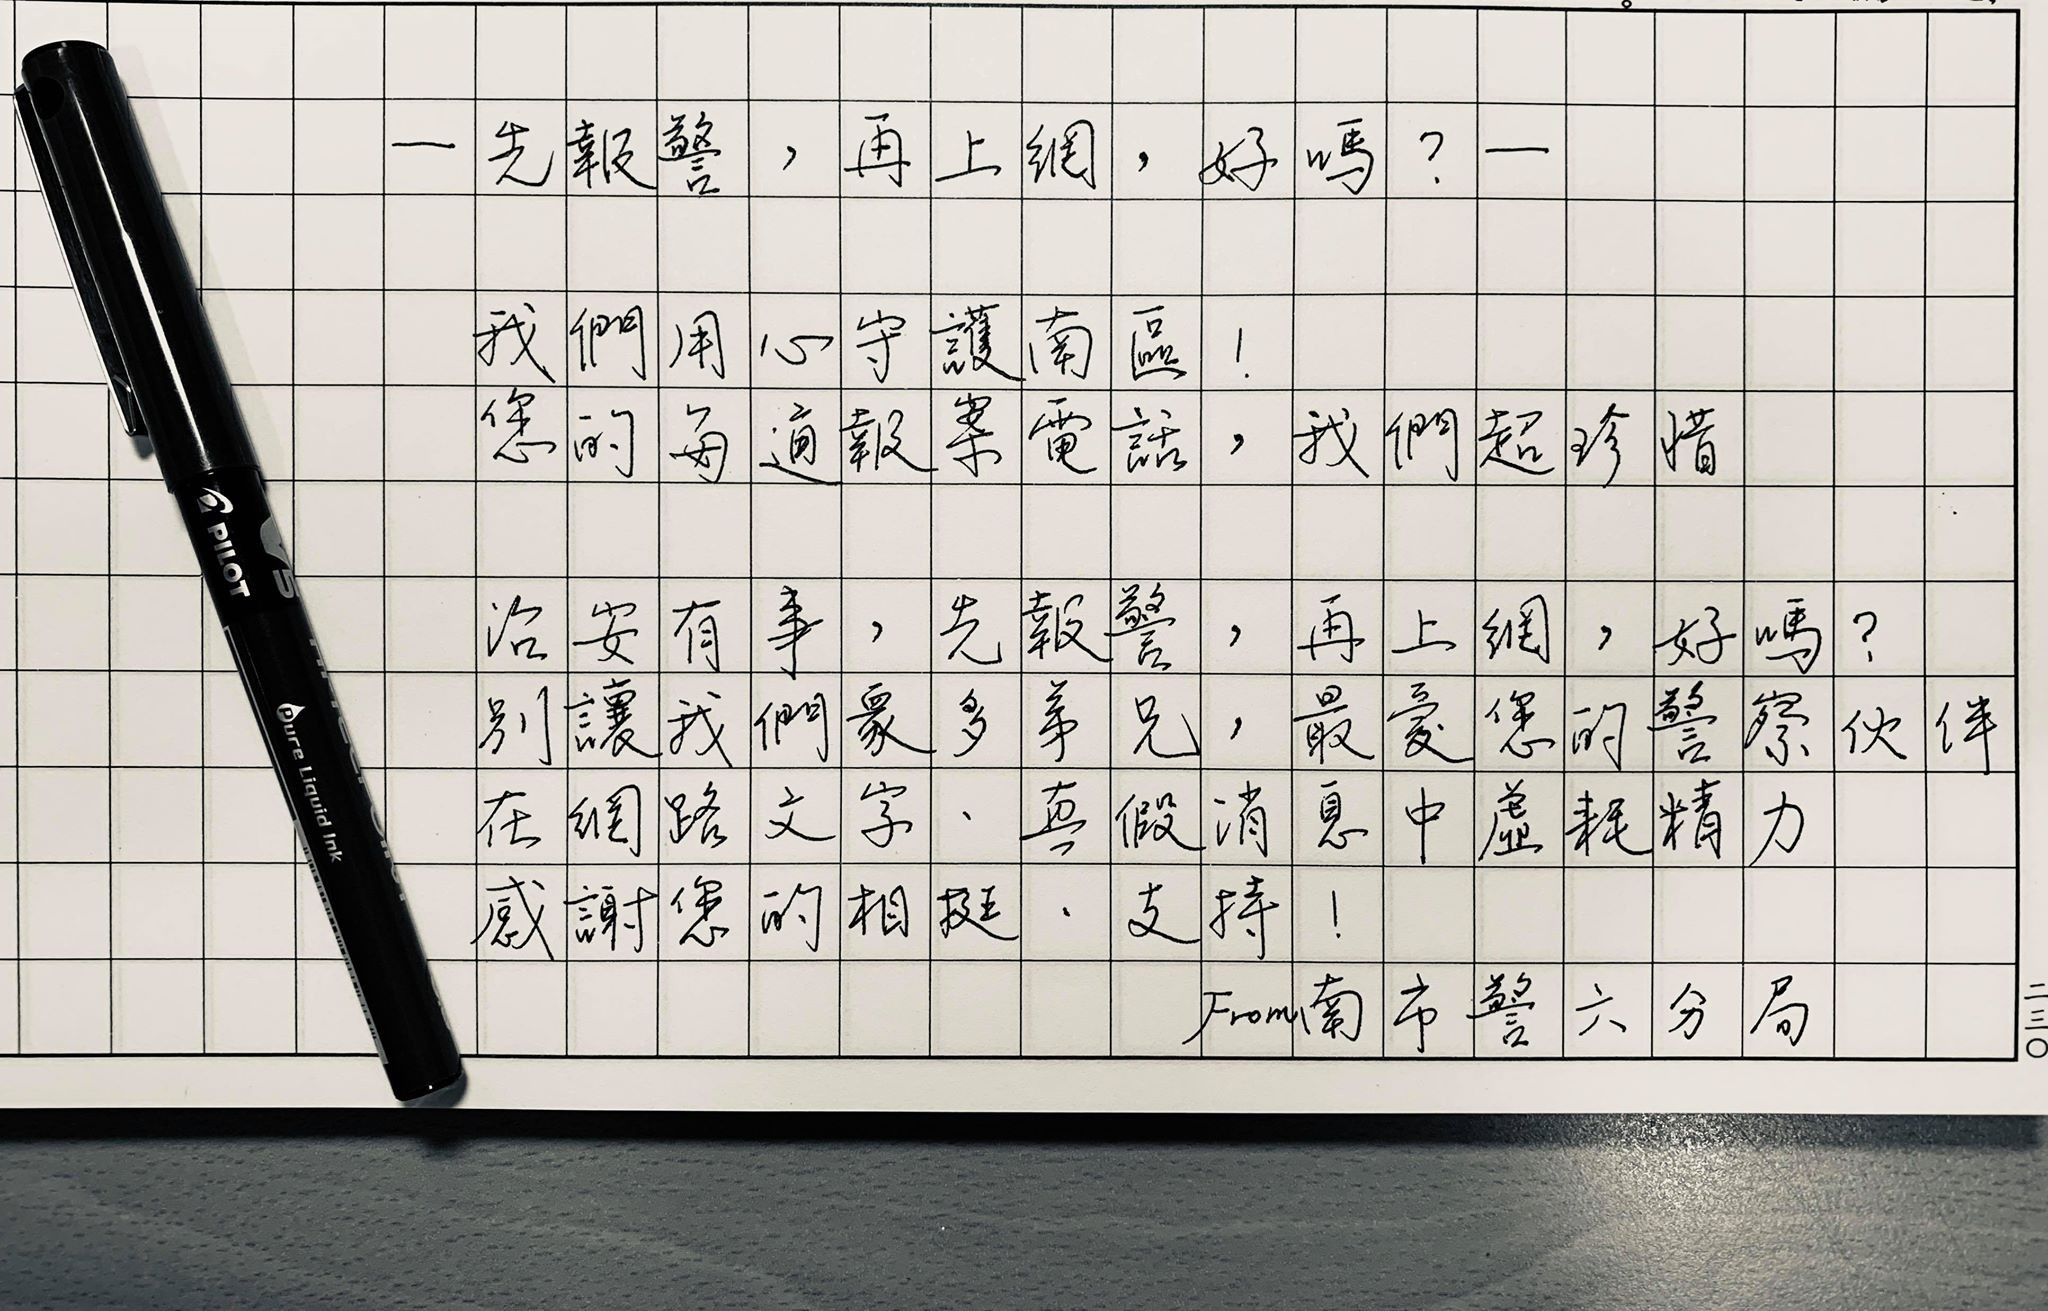 —先報警，再上網，好嗎？—
我們用心守護南區！
您的每通報案電話，我們超珍惜
治安有事，先報警，再上網，好嗎？
別讓我們眾多弟兄，最愛您的警察伙伴
在網路文字、真假消息中虛耗精力
感謝您的相挺、支持！
From南市警六分局
二三〇
PILOT
V5
Pure Liquid Ink